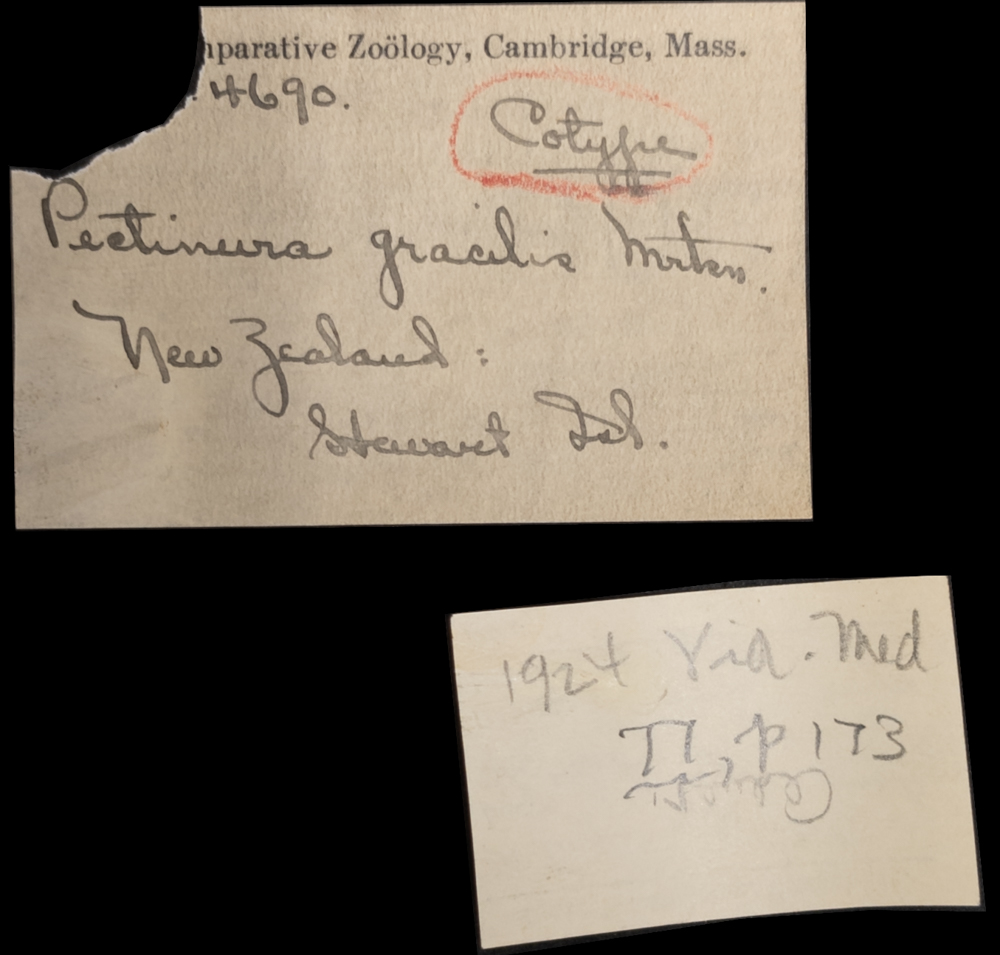 mparative Zoölogy, Cambridge, Mass.
4690.
Cotype
Pectinura gracilis Mrtsn.
New Zealand:
Stewart Isl.
1924 Vid. Med
77, p 173